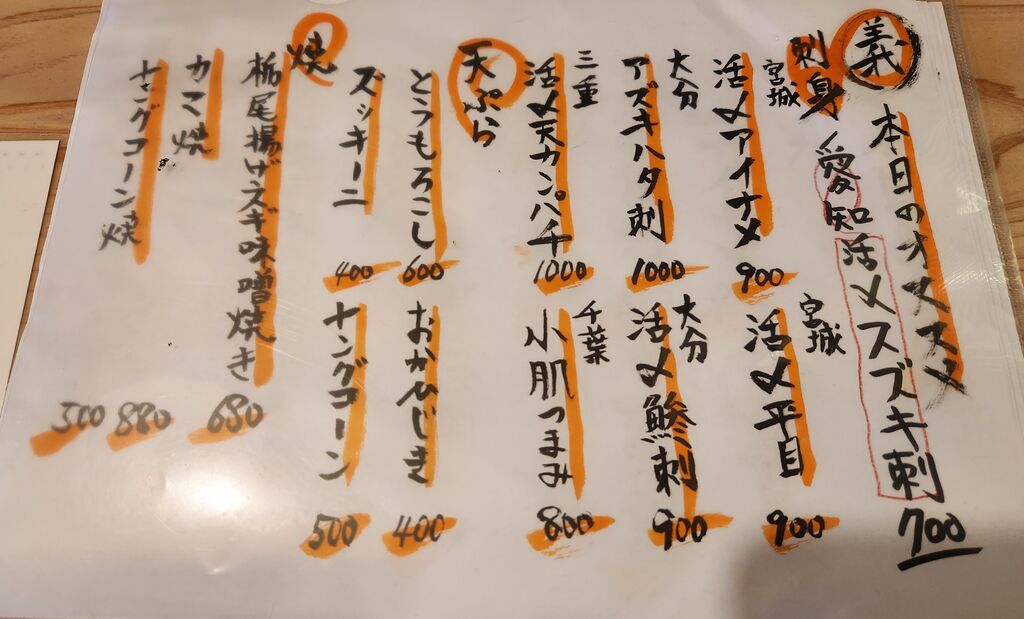 義
本日のオススメ
刺身
愛知
活〆スズキ刺
700
宮城
活〆アイナメ
900
宮城
活〆平目
900
大分
アズキハタ刺
1000
大分
活〆鯵刺
900
三重
活〆天カンパチ
1000
千葉
小肌つまみ
800
天ぷら
とうもろこし
600
おかひじき
400
ズッキーニ
400
ヤングコーン
500
焼
栃尾揚げネギ味噌焼き
680
カマ焼
880
ヤングコーン焼
500